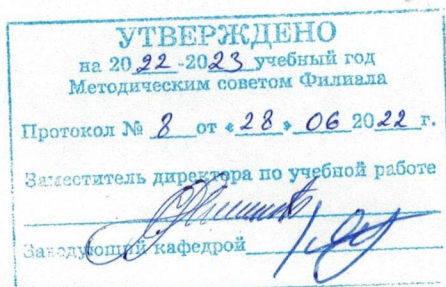 УТВЕРЖДЕНО
на 2022-2023 учебный год
Методическим советом Филиала
Протокол № 8 от «28» 06 2022 г.
Заместитель директора по учебной работе
Заведующий кафедрой